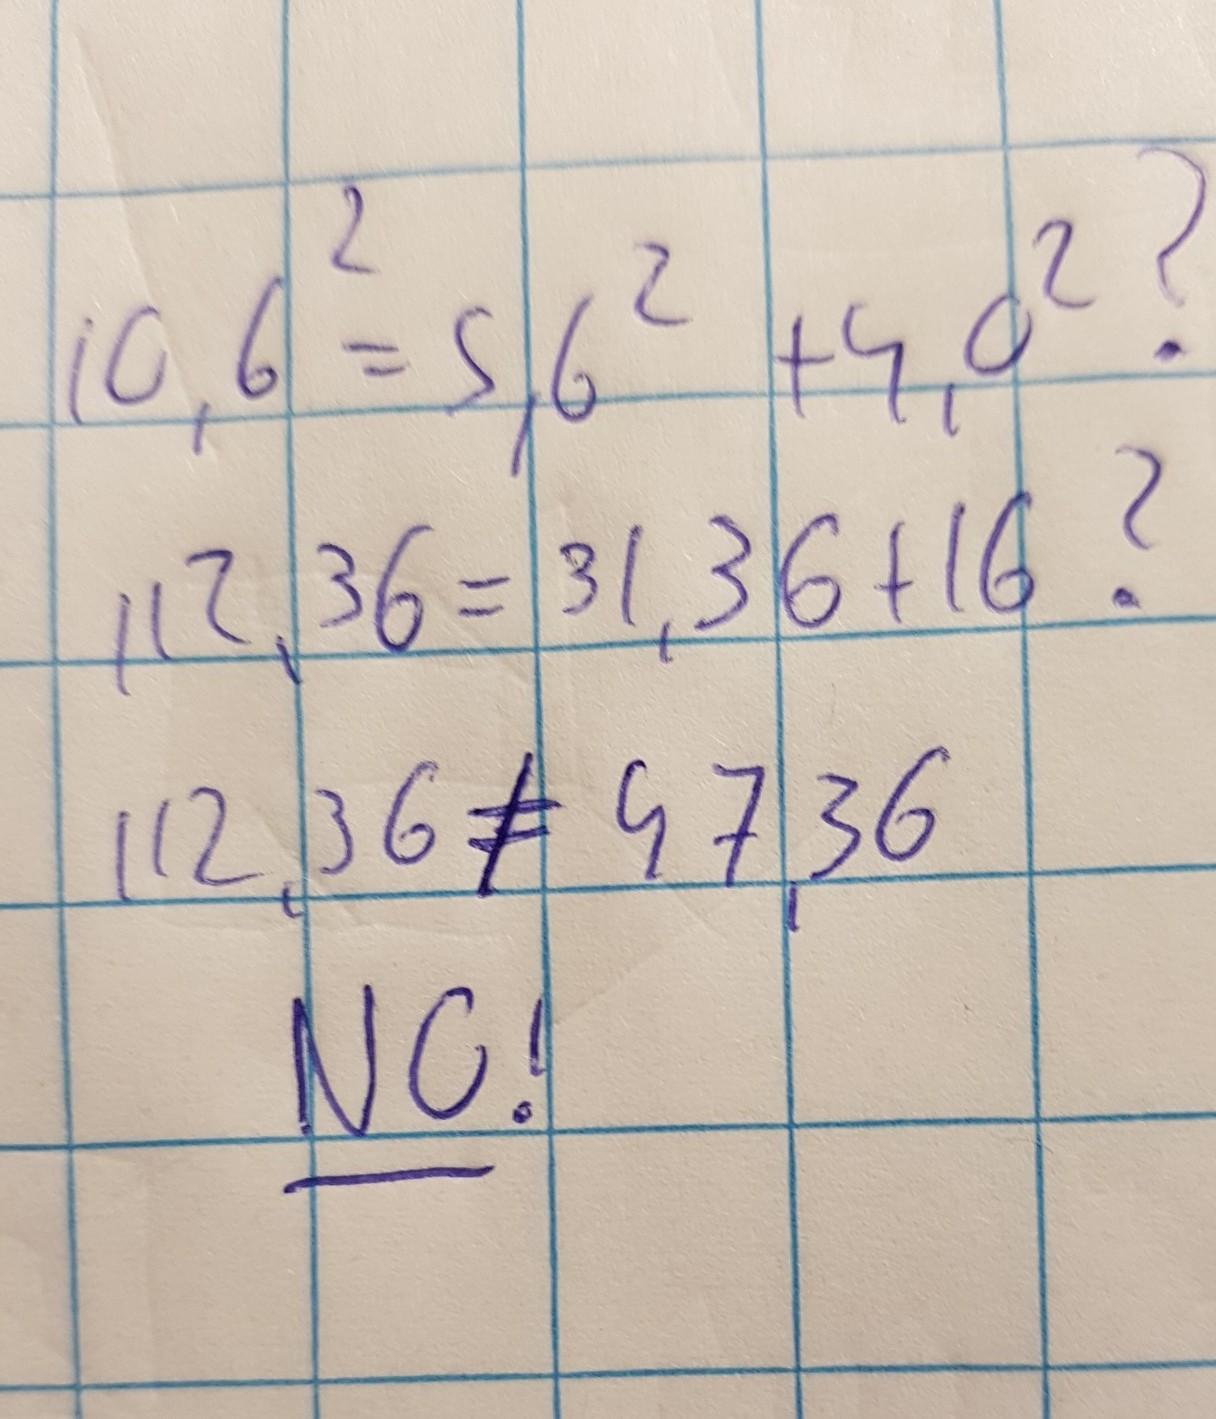 10,6² = 5,6² + 4,0² ?
112,36 = 31,36 + 16 ?
112,36 ≠ 47,36
NO!